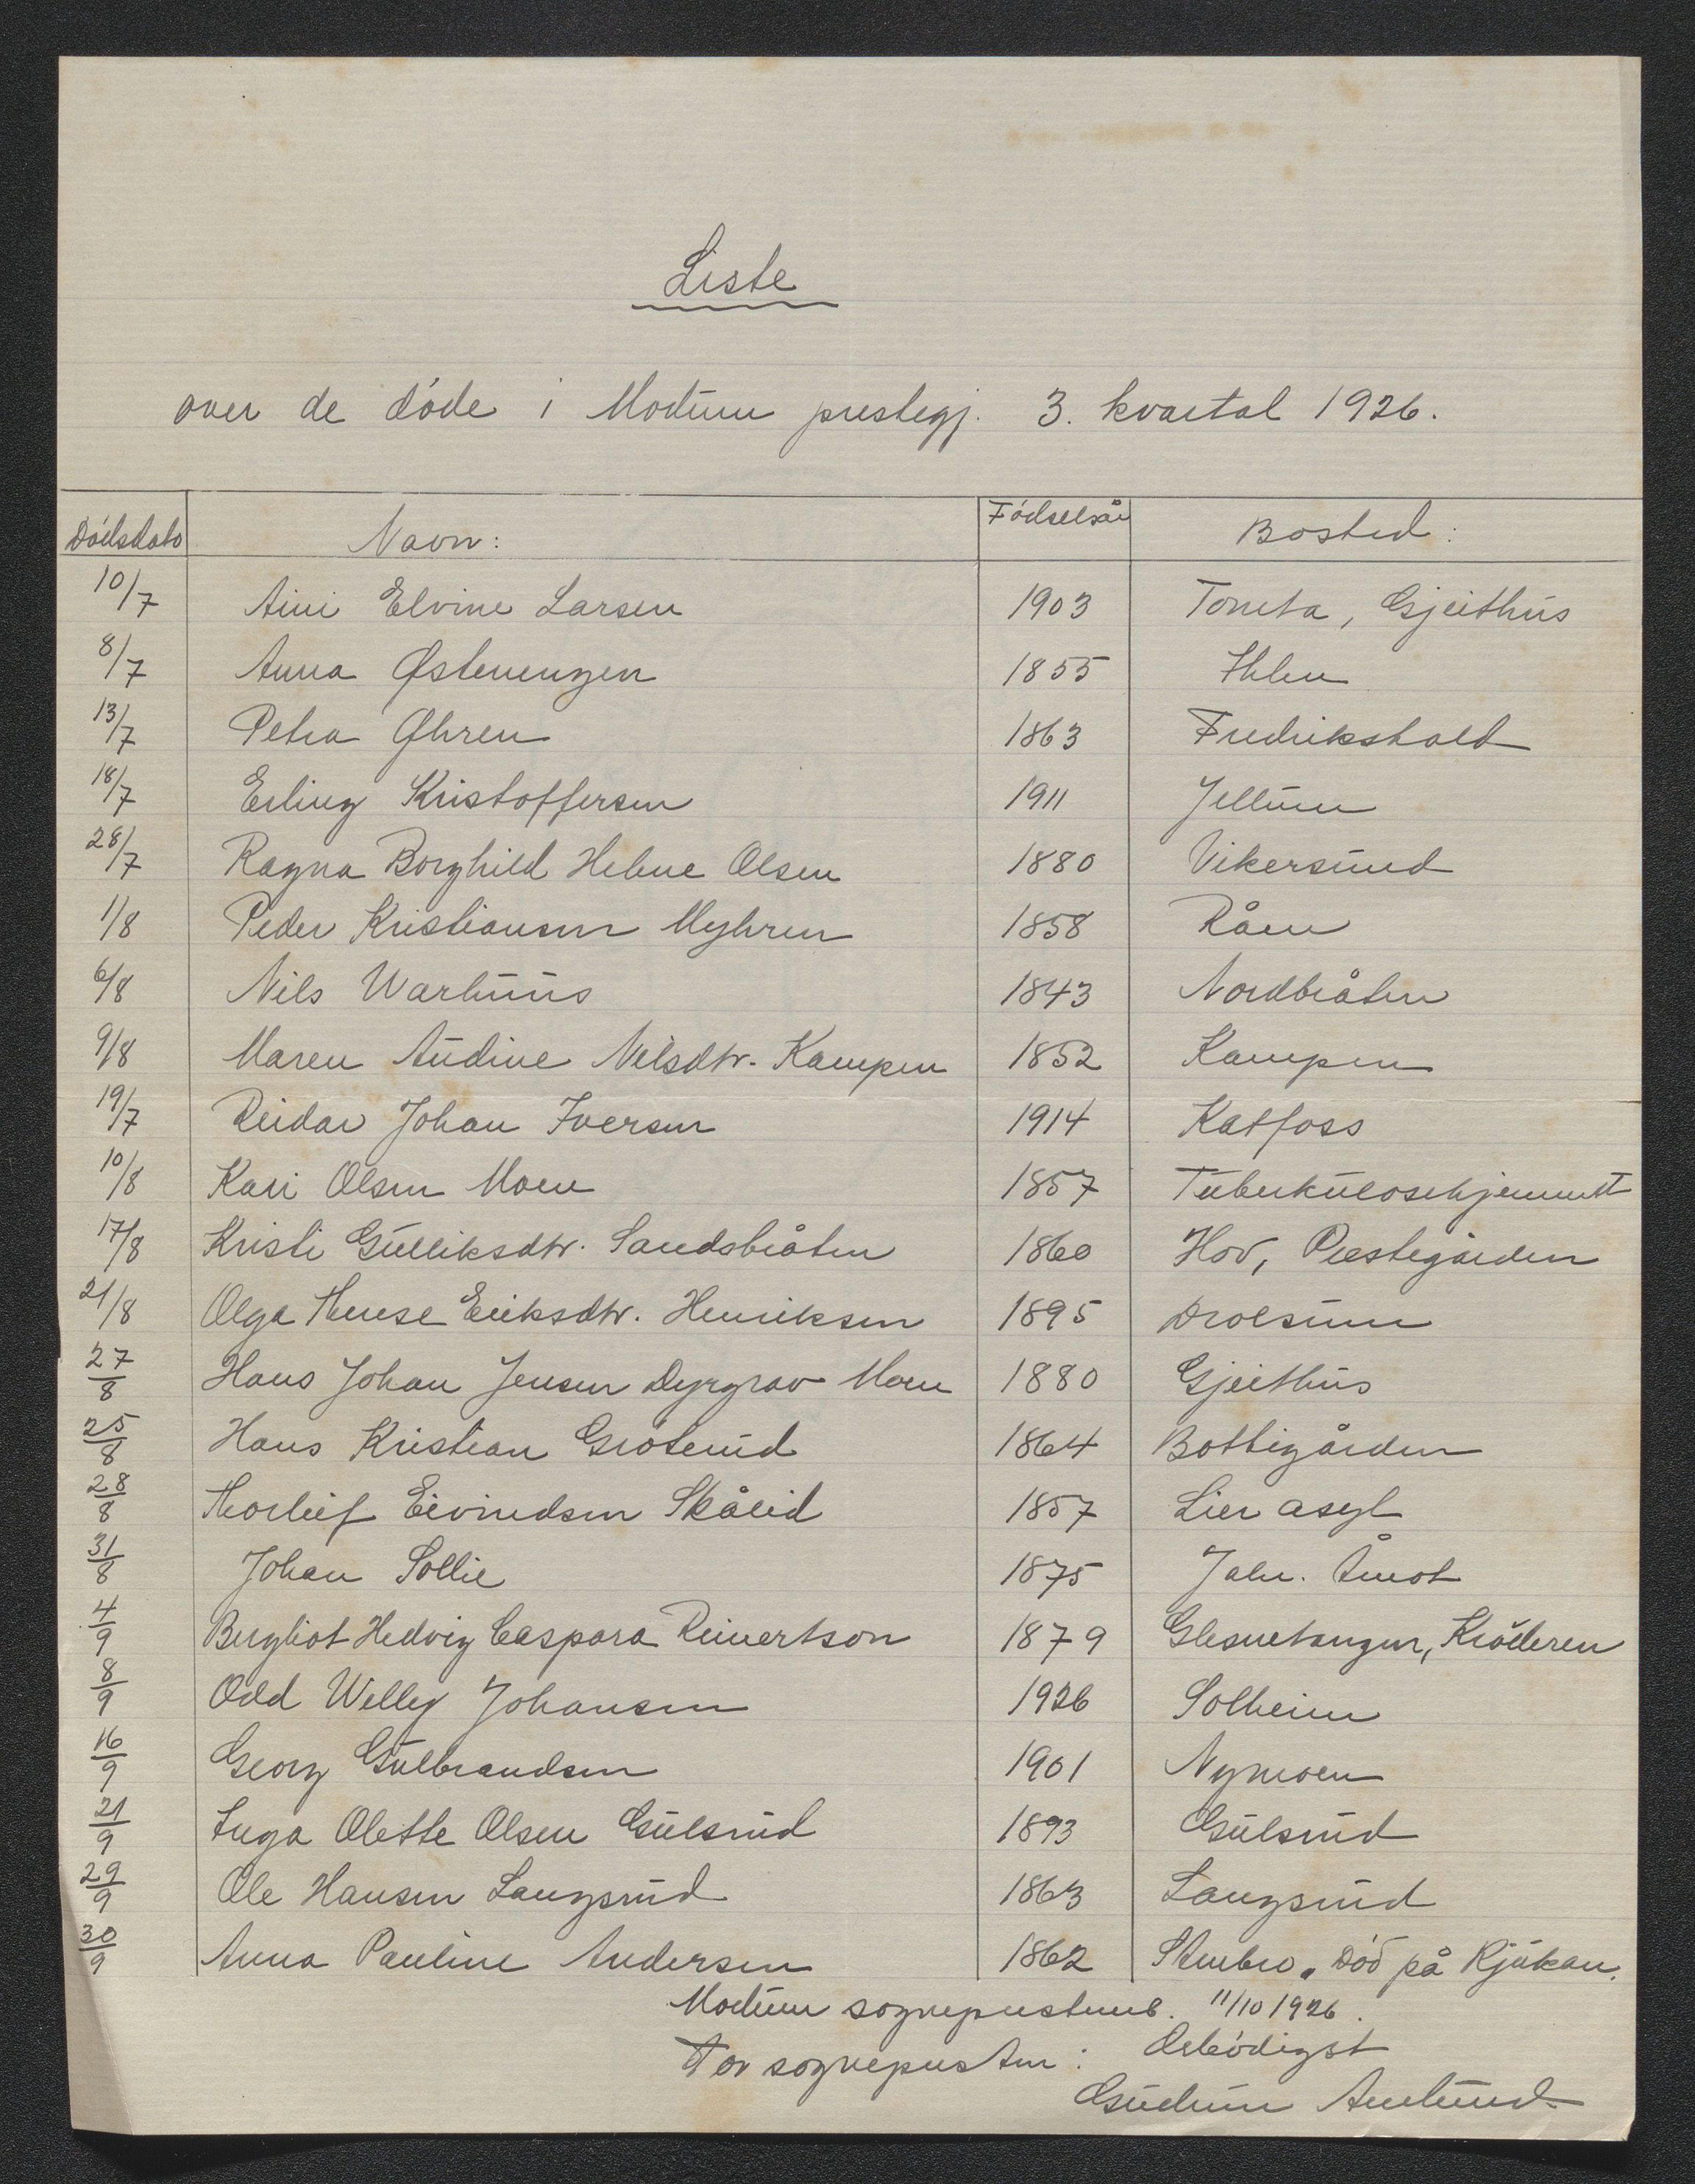 Liste
over de døde i Modum prestegj. 3. kvartal 1926.
Dødsdato Navn: Fødselsår Bosted:
10/7 Aini Elvine Larsen 1903 Tometa, Gjeithus
8/7 Anna Østenengen 1855 Ihlen
13/7 Petra Øhren 1863 Fredrikshald
18/7 Erling Kristoffersen 1911 Jellum
28/7 Ragna Borghild Helene Olsen 1880 Vikersund
1/8 Peder Kristiansen Myhren 1858 Råen
6/8 Nils Warhuus 1843 Nordbråten
9/8 Maren Audine Nilsdtr. Kampen 1852 Kampen
19/7 Reidar Johan Iversen 1914 Katfoss
10/8 Kari Olsen Moen 1857 Tuberkulosehjemmet
17/8 Kristi Gulliksdtr. Sandsbråten 1860 Hov, Prestegården
21/8 Olga Therese Eriksdtr. Henriksen 1895 Drolsum
27/8 Hans Johan Jensen Dyrgrav Moen 1880 Gjeithus
25/8 Hans Kristian Grøterud 1864 Bottigården
28/8 Thorleif Eivindsen Skålid 1857 Lier asyl
31/8 Johan Sollie 1875 Jahr. Åmot
4/9 Bergliot Hedvig Caspara Reinertson 1879 Glesnetangen, Krøderen
8/9 Odd Willy Johansen 1926 Solheim
16/9 Georg Gulbrandsen 1901 Nymoen
21/9 Inga Olette Olsen Gulsrud 1893 Gulsrud
29/9 Ole Hansen Langsrud 1863 Langsrud
30/9 Anna Pauline Andersen 1862 Stenbro. Død på Rjukan.
Modum sogneprestemb. 11/10 1926.
For sognepresten: Ærbødigst
Gudrun Amlund